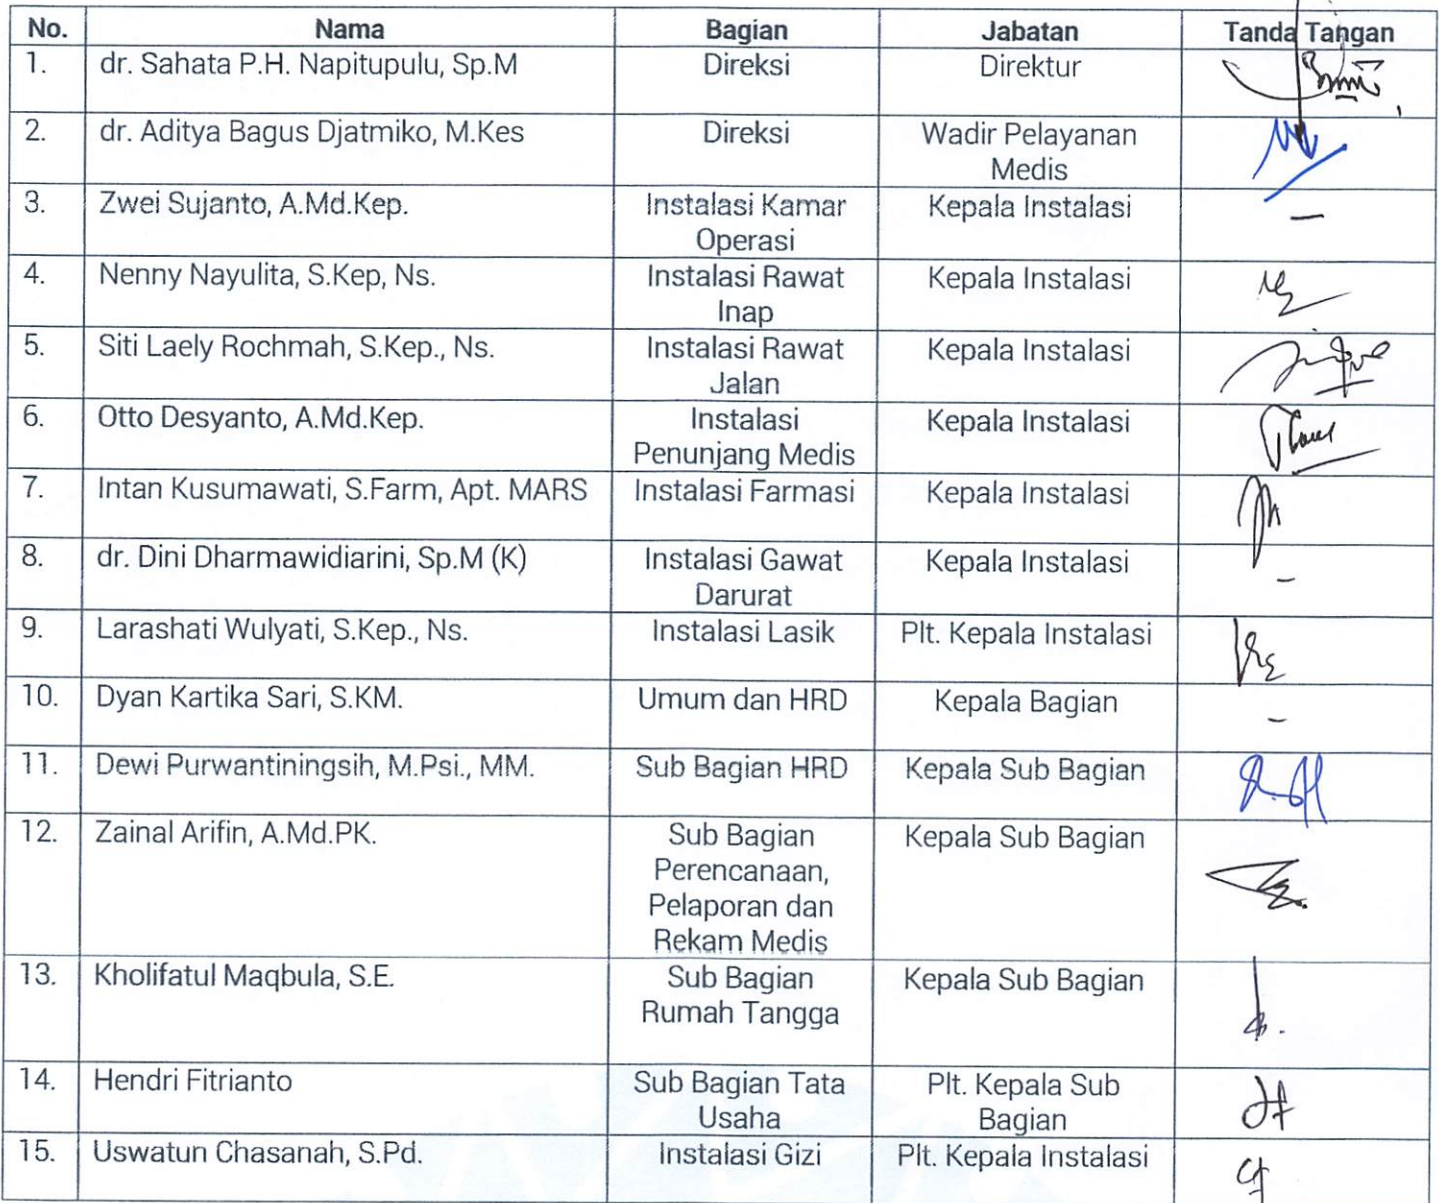 No. Nama Bagian Jabatan Tanda Tangan
1. dr. Sahata P.H. Napitupulu, Sp.M Direksi Direktur
2. dr. Aditya Bagus Djatmiko, M.Kes Direksi Wadir Pelayanan
Medis
3. Zwei Sujanto, A.Md.Kep. Instalasi Kamar Kepala Instalasi –
Operasi
4. Nenny Nayulita, S.Kep, Ns. Instalasi Rawat Kepala Instalasi
Inap
5. Siti Laely Rochmah, S.Kep., Ns. Instalasi Rawat Kepala Instalasi
Jalan
6. Otto Desyanto, A.Md.Kep. Instalasi Kepala Instalasi
Penunjang Medis
7. Intan Kusumawati, S.Farm, Apt. MARS Instalasi Farmasi Kepala Instalasi
8. dr. Dini Dharmawidiarini, Sp.M (K) Instalasi Gawat Kepala Instalasi –
Darurat
9. Larashati Wulyati, S.Kep., Ns. Instalasi Lasik Plt. Kepala Instalasi
10. Dyan Kartika Sari, S.KM. Umum dan HRD Kepala Bagian –
11. Dewi Purwantiningsih, M.Psi., MM. Sub Bagian HRD Kepala Sub Bagian
12. Zainal Arifin, A.Md.PK. Sub Bagian Kepala Sub Bagian
Perencanaan,
Pelaporan dan
Rekam Medis
13. Kholifatul Maqbula, S.E. Sub Bagian Kepala Sub Bagian
Rumah Tangga
14. Hendri Fitrianto Sub Bagian Tata Plt. Kepala Sub
Usaha Bagian
15. Uswatun Chasanah, S.Pd. Instalasi Gizi Plt. Kepala Instalasi